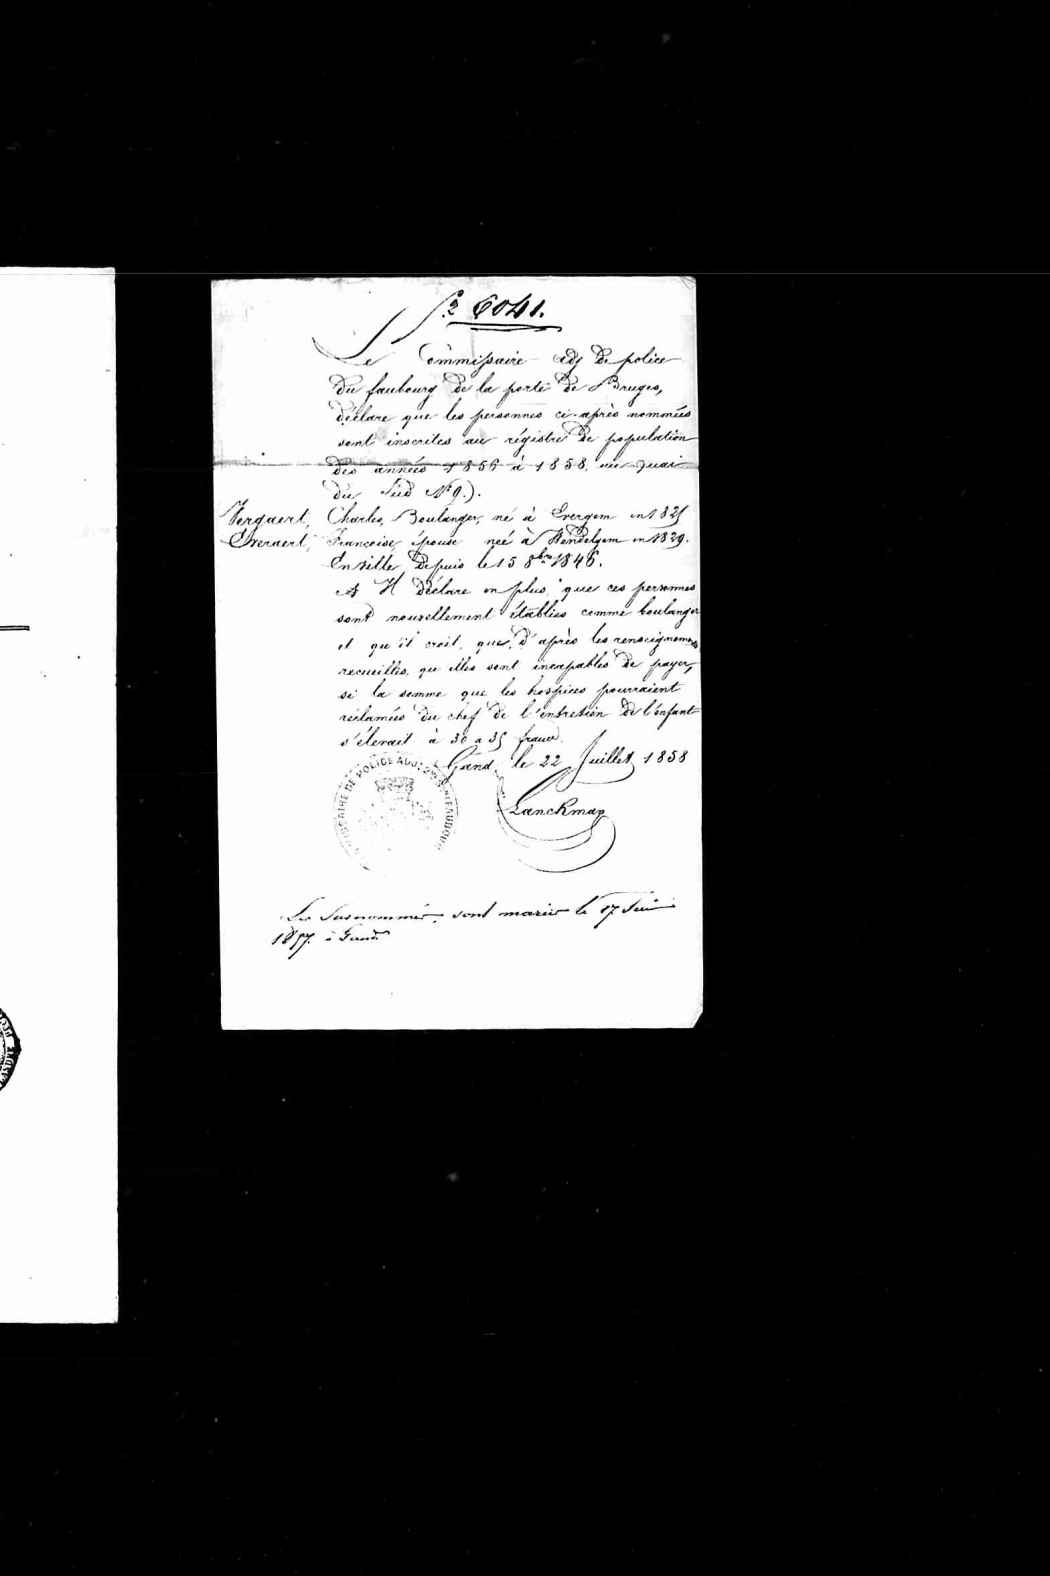 S.2 6041.
Le Commissaire adj de police
du faubourg de la porte de Bruges,
déclare que les personnes ci-après nommées
sont inscrites au régistre de population
des années 1856 à 1858, au quai
du Sud N° 9.).
Vergaert, Charles, Boulanger, né à Evergem en 1825
Everaert, Françoise, épouse neé à Wendelgem en 1829.
En ville, depuis le 15 8bre 1846.
Il déclare en plus, que ces personnes
sont nouvellement établies comme boulanger
et qu'il croit, que, d'après les renseignemens
recueillis, qu'elles sont incapables de payer,
si la somme que les hospices pourraient
réclamées du chef de l'entretien de l'enfant
s'élevait à 30 a 35 francs.
Gand, le 22 Juillet 1858
Lanckman
COMMISSAIRE DE POLICE ADJ
Les Susnommés sont mariés le 17 Juin
1857. à Gand